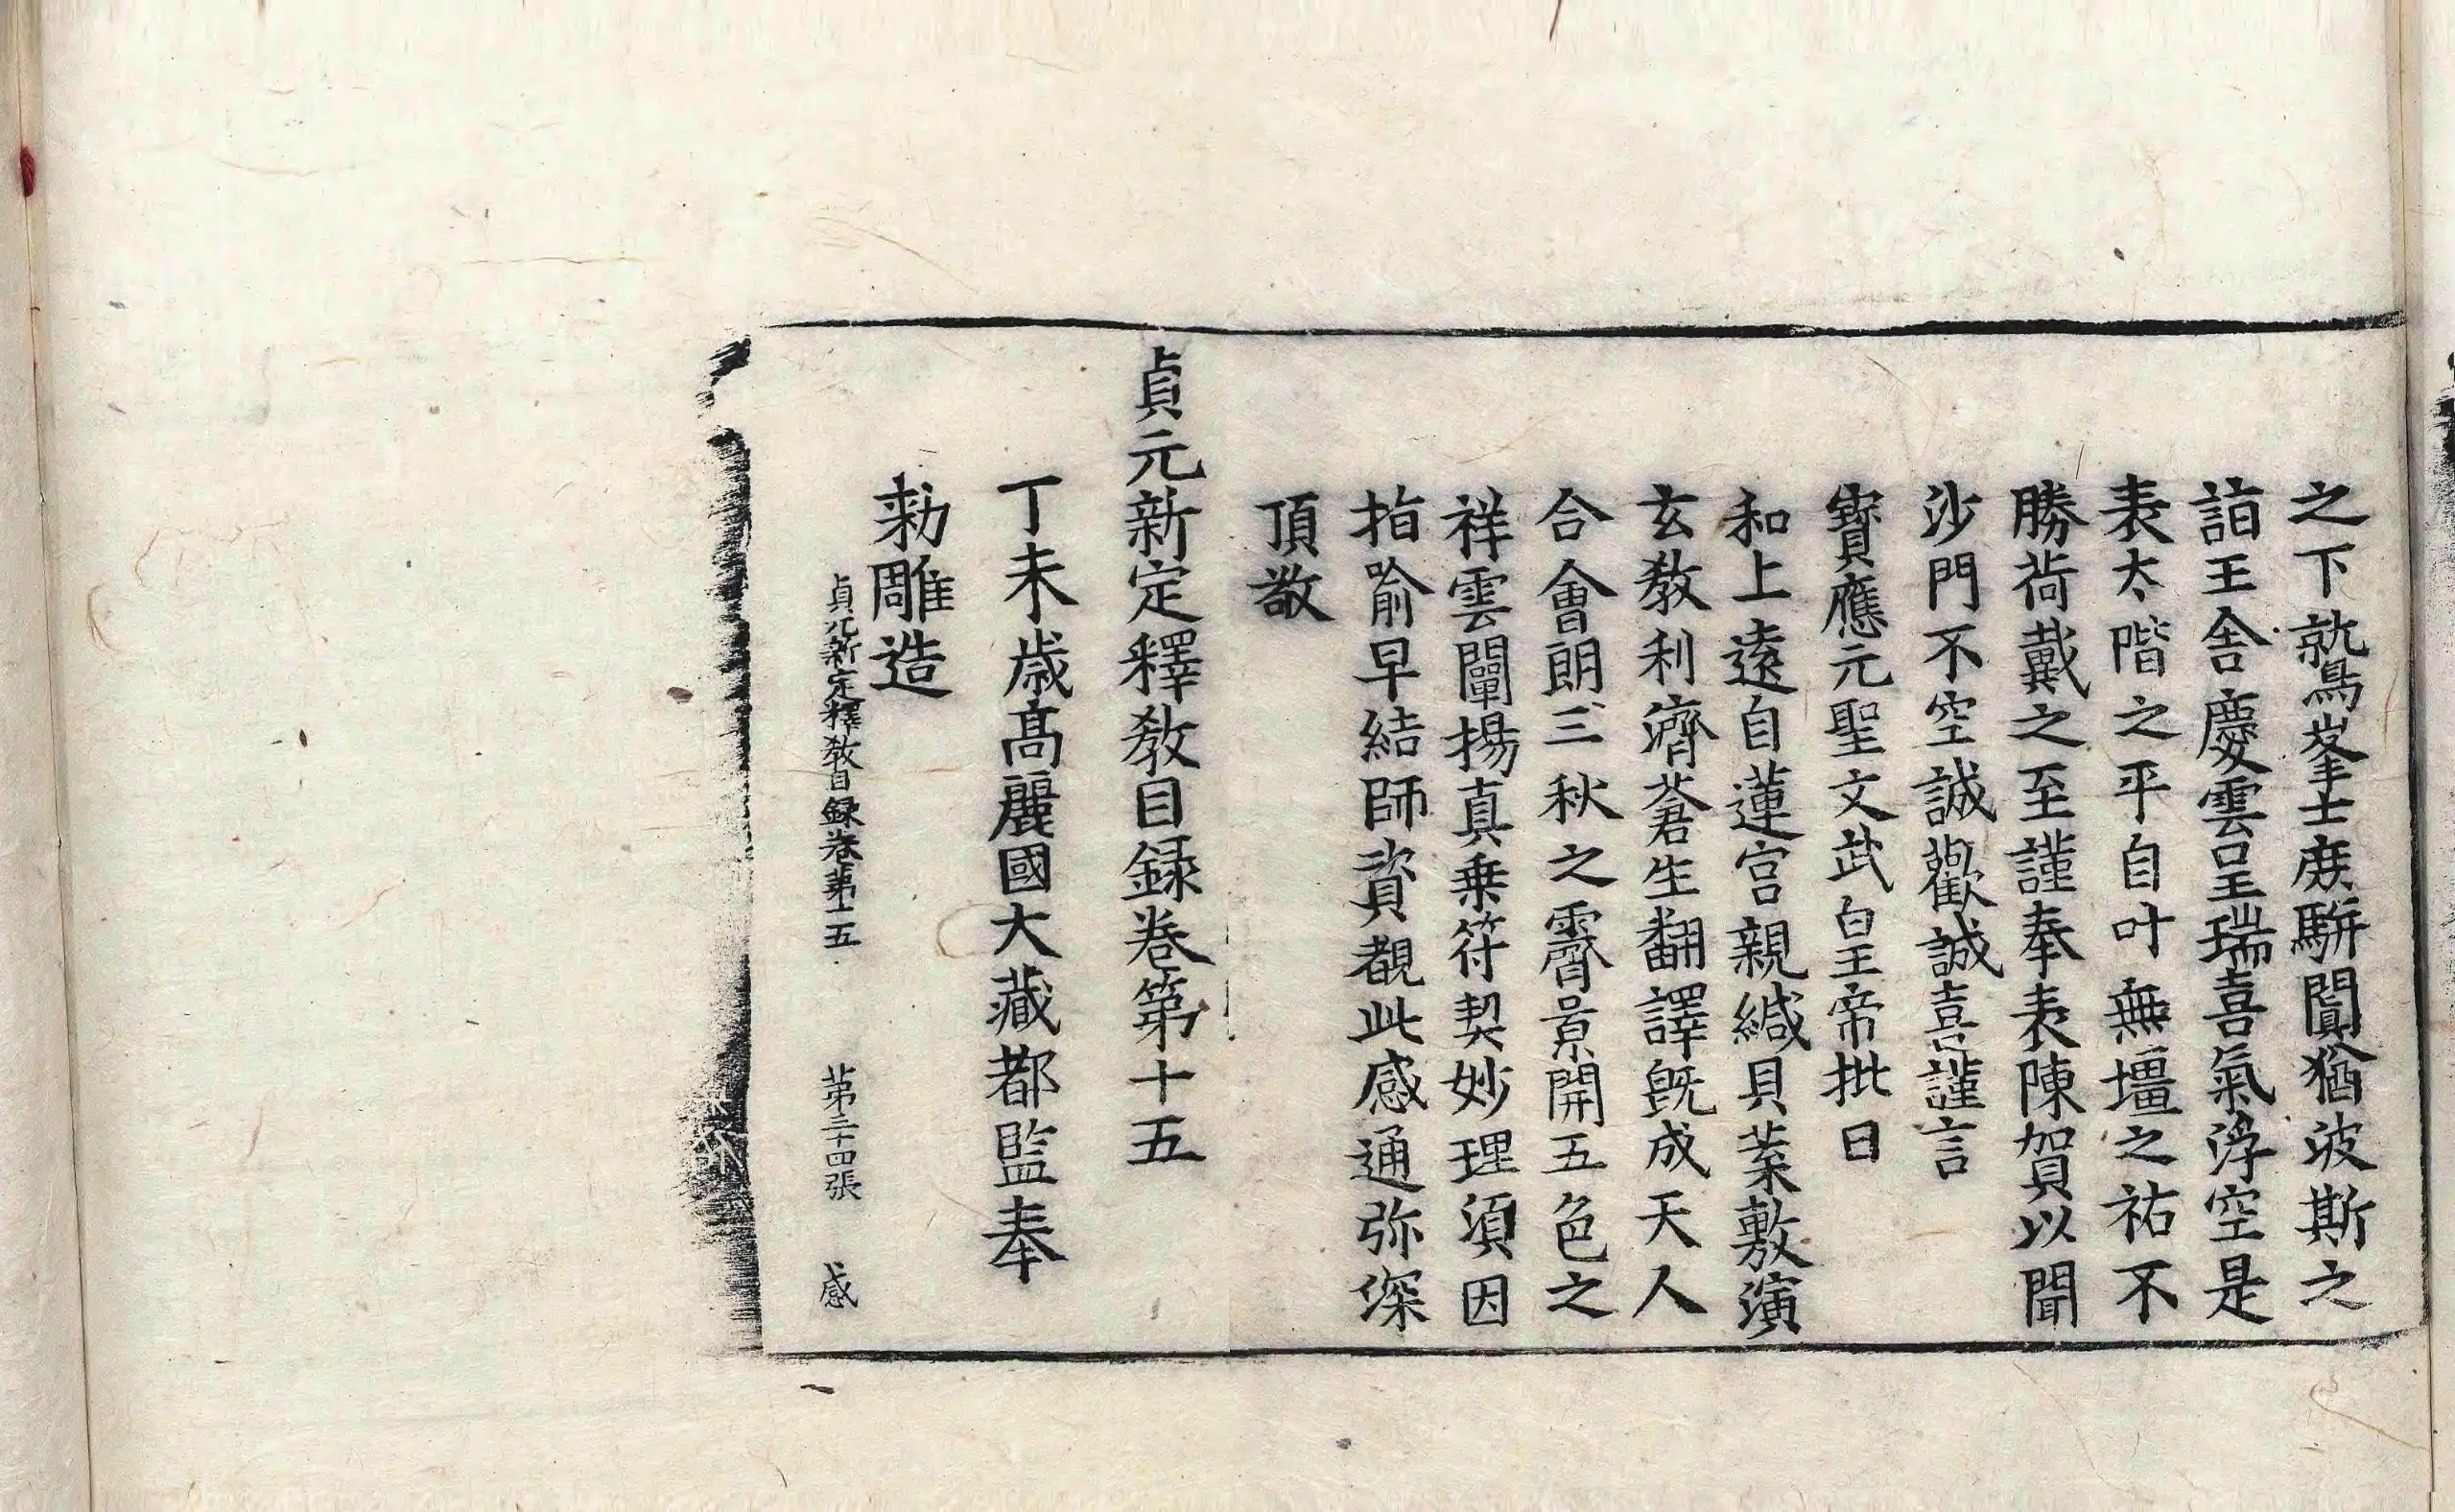 之下鷲峯士庶駢闐猶波斯之
詣王舍慶雲呈瑞喜氣浮空是
表太階之平自叶無壃之祐不
勝荷戴之至謹奉表陳賀以聞
沙門不空誠歡誠喜謹言
寶應元聖文武皇帝批曰
和上遠自蓮宮親緘貝葉敷演
玄教利濟蒼生翻譯旣成天人
合會朗三秋之霽景開五色之
祥雲闡揚真乗符契妙理須因
指喻早結師資覩此感通弥深
頂敬
貞元新定釋教目録卷第十五
丁未歳高麗國大藏都監奉
勑雕造
貞元新定釋教目録卷第十五 第三十四張 感